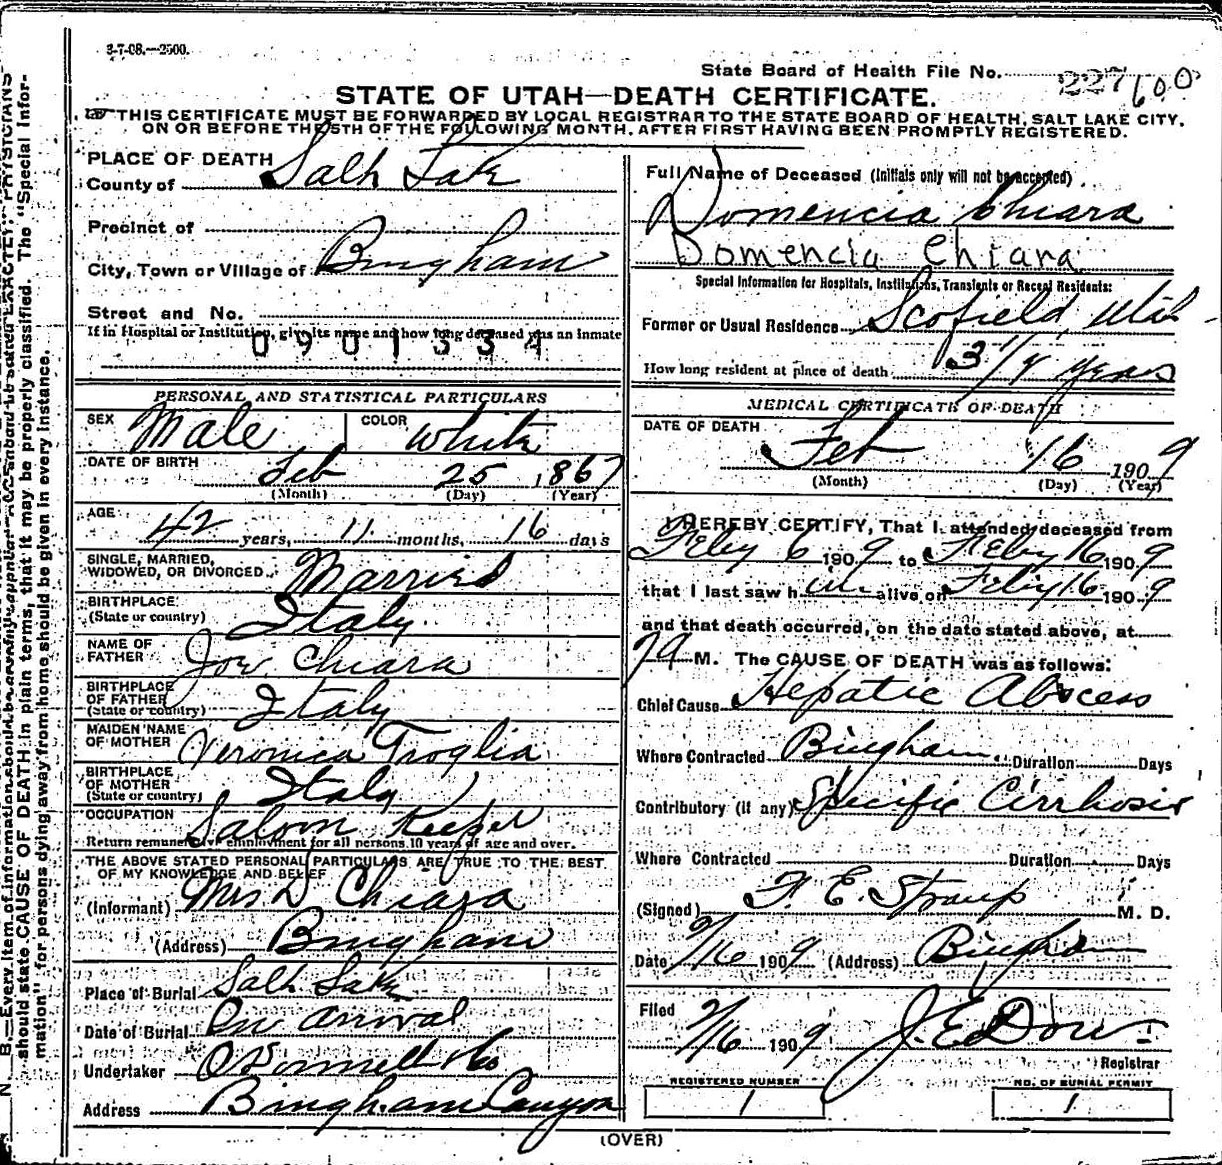 3-7-08.—2500.
State Board of Health File No. 227600
STATE OF UTAH—DEATH CERTIFICATE.
THIS CERTIFICATE MUST BE FORWARDED BY LOCAL REGISTRAR TO THE STATE BOARD OF HEALTH, SALT LAKE CITY,
ON OR BEFORE THE 5TH OF THE FOLLOWING MONTH, AFTER FIRST HAVING BEEN PROMPTLY REGISTERED.
PLACE OF DEATH
County of Salt Lake
Precinct of
City, Town or Village of Bingham
Street and No.
If in Hospital or Institution, give its name and how long deceased was an inmate
0901334
PERSONAL AND STATISTICAL PARTICULARS
SEX Male COLOR White
DATE OF BIRTH Feb 25, 1867
(Month) (Day) (Year)
AGE 42 years, 11 months, 16 days
SINGLE, MARRIED,
WIDOWED, OR DIVORCED Married
BIRTHPLACE
(State or country) Italy
NAME OF
FATHER Joe Chiara
BIRTHPLACE
OF FATHER
(State or country) Italy
MAIDEN NAME
OF MOTHER Veronica Troglia
BIRTHPLACE
OF MOTHER
(State or country) Italy
OCCUPATION Saloon Keeper
Return remunerative employment for all persons 10 years of age and over.
THE ABOVE STATED PERSONAL PARTICULARS ARE TRUE TO THE BEST
OF MY KNOWLEDGE AND BELIEF
(Informant) Mrs D Chiara
(Address) Bingham
Place of Burial Salt Lake
Date of Burial On arrival
Undertaker O'Donnell & Co
Address Bingham Canyon
Full Name of Deceased (Initials only will not be accepted)
Domencia Chiara
Domencia Chiara
Special Information for Hospitals, Institutions, Transients or Recent Residents:
Former or Usual Residence Scofield, Utah
How long resident at place of death 3 1/4 years
MEDICAL CERTIFICATE OF DEATH
DATE OF DEATH
Feb 16 1909
(Month) (Day) (Year)
I HEREBY CERTIFY, That I attended deceased from
Feby 6 1909 to Feby 16 1909
that I last saw him alive on Feby 16 1909
and that death occurred, on the date stated above, at
M. The CAUSE OF DEATH was as follows:
Chief Cause Hepatic Abscess
Where Contracted Bingham Duration Days
Contributory (if any) Specific Cirrhosis
Where Contracted Duration Days
(Signed) F. E. Straup M. D.
Date 2/16 1909 (Address) Bingham
Filed 2/16 1909 J. E. Dow
Registrar
REGISTERED NUMBER
1
NO. OF BURIAL PERMIT
1
(OVER)
N. B.—Every item of information should be carefully supplied. AGE should be stated EXACTLY. PHYSICIANS
should state CAUSE OF DEATH in plain terms, that it may be properly classified. The "Special Infor-
mation" for persons dying away from home should be given in every instance.